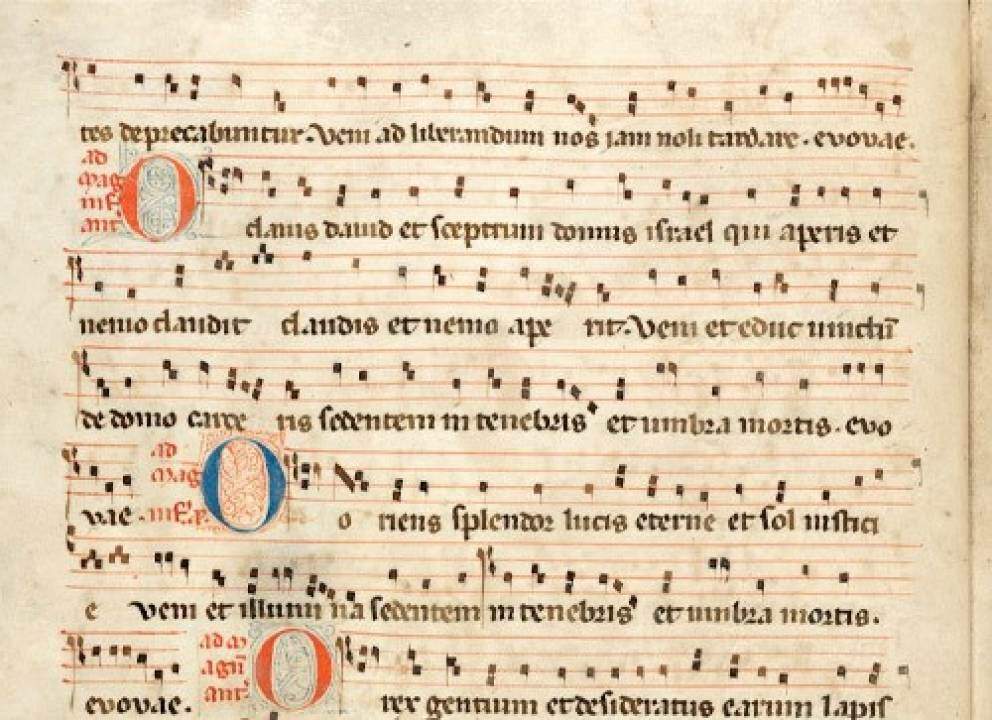 tes deprecabuntur. Veni ad liberandum nos jam noli tardare. evovae.
ad
mag
ant.
O clauis dauid et sceptrum domus israel qui aperis et
nemo claudit claudis et nemo ape rit. Veni et educ uinctū
de domo carce ris sedentem in tenebris et umbra mortis. evo
ad
mag
vae. O o riens splendor lucis eterne et sol iustici
e veni et illumi na sedentem in tenebris et umbra mortis.
ad m
agñ
ant.
evovae. O rex gentium et desideratus earum lapis